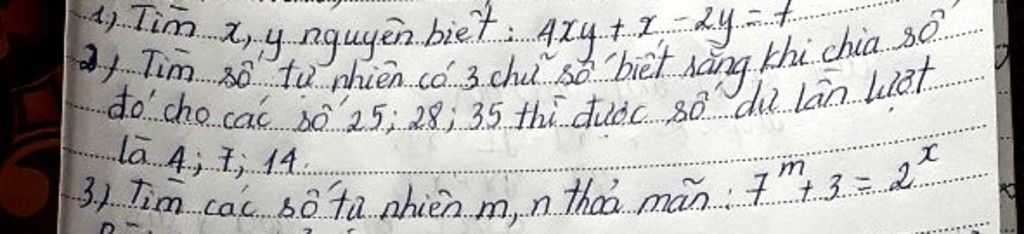 1.) Tìm x, y nguyên biết : 4xy + x - 2y = 7
2.) Tìm số tự nhiên có 3 chữ số biết rằng khi chia số
đó cho các số 25; 28; 35 thì được số dư lần lượt
là 4; 7; 14.
3.) Tìm các số tự nhiên m, n thoả mãn : 7^m + 3 = 2^x